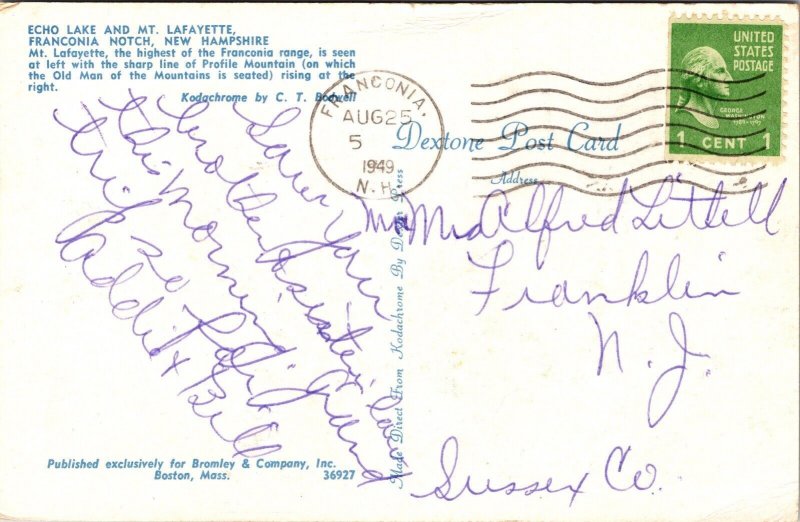 ECHO LAKE AND MT. LAFAYETTE,
FRANCONIA NOTCH, NEW HAMPSHIRE
Mt. Lafayette, the highest of the Franconia range, is seen
at left with the sharp line of Profile Mountain (on which
the Old Man of the Mountains is seated) rising at the
right.
Kodachrome by C. T. Bodwell
Saw your
brother & sister in law
this morning.
trip so far grand
Addie & Bill
Published exclusively for Bromley & Company, Inc.
Boston, Mass. 36927
Made Direct From Kodachrome By Dexter Press
FRANCONIA,
AUG 25
5
1949
N. H.
UNITED
STATES
POSTAGE
GEORGE
WASHINGTON
1789-1797
1 CENT 1
Dextone Post Card
Address
Mr Mrs Alfred Littell
Franklin
N. J.
Sussex Co.